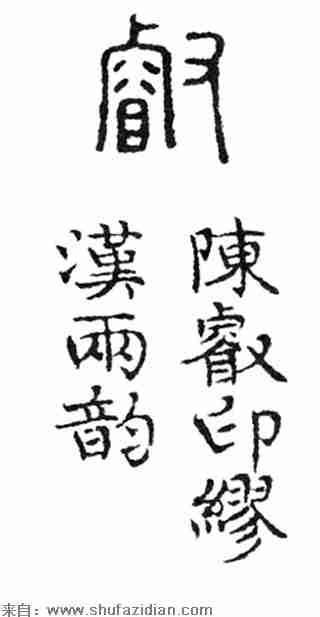 叡
陳叡印繆
漢兩韵
来自：www.shufazidian.com